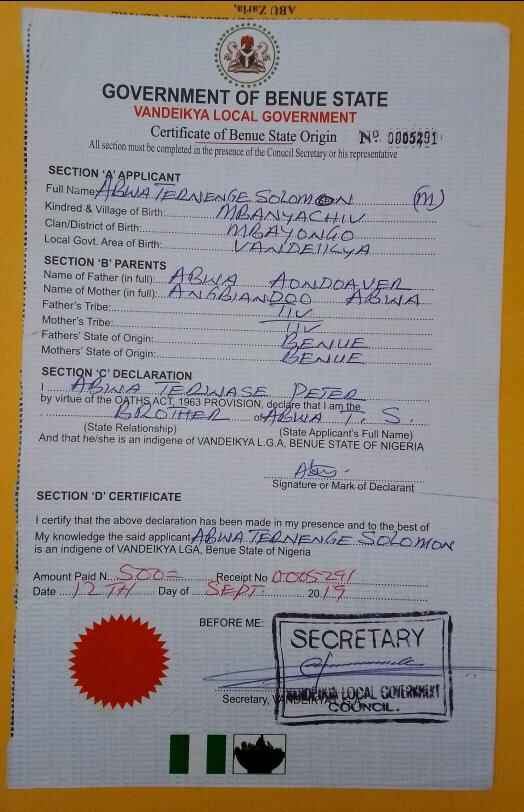 ABU Zaria,
GOVERNMENT OF BENUE STATE
VANDEIKYA LOCAL GOVERNMENT
Certificate of Benue State Origin Nº 0005291
All section must be completed in the presence of the Conucil Secretary or his representative
SECTION 'A' APPLICANT
Full Name ABWA TERNENGE SOLOMON (M)
Kindred & Village of Birth: MBANYACHIV
Clan/District of Birth: MBAYONGO
Local Govt. Area of Birth: VANDEIKYA
SECTION 'B' PARENTS
Name of Father (in full): ABWA AONDOAVER
Name of Mother (in full): ANGBIANDOO ABWA
Father's Tribe: TIV
Mother's Tribe: TIV
Fathers' State of Origin: BENUE
Mothers' State of Origin: BENUE
SECTION 'C' DECLARATION
I ABWA TERWASE PETER
by virtue of the OATHS ACT, 1963 PROVISION, declare that I am the
BROTHER of ABWA T. S.
(State Relationship) (State Applicant's Full Name)
And that he/she is an indigene of VANDEIKYA L.G.A, BENUE STATE OF NIGERIA
Signature or Mark of Declarant
SECTION 'D' CERTIFICATE
I certify that the above declaration has been made in my presence and to the best of
My knowledge the said applicant ABWA TERNENGE SOLOMON
is an indigene of VANDEIKYA LGA, Benue State of Nigeria
Amount Paid N 500= Receipt No 0005291
Date 12TH Day of SEPT. 2019
BEFORE ME:
SECRETARY
VANDEIKYA LOCAL GOVERNMENT
COUNCIL.
Secretary, VANDEIKYA